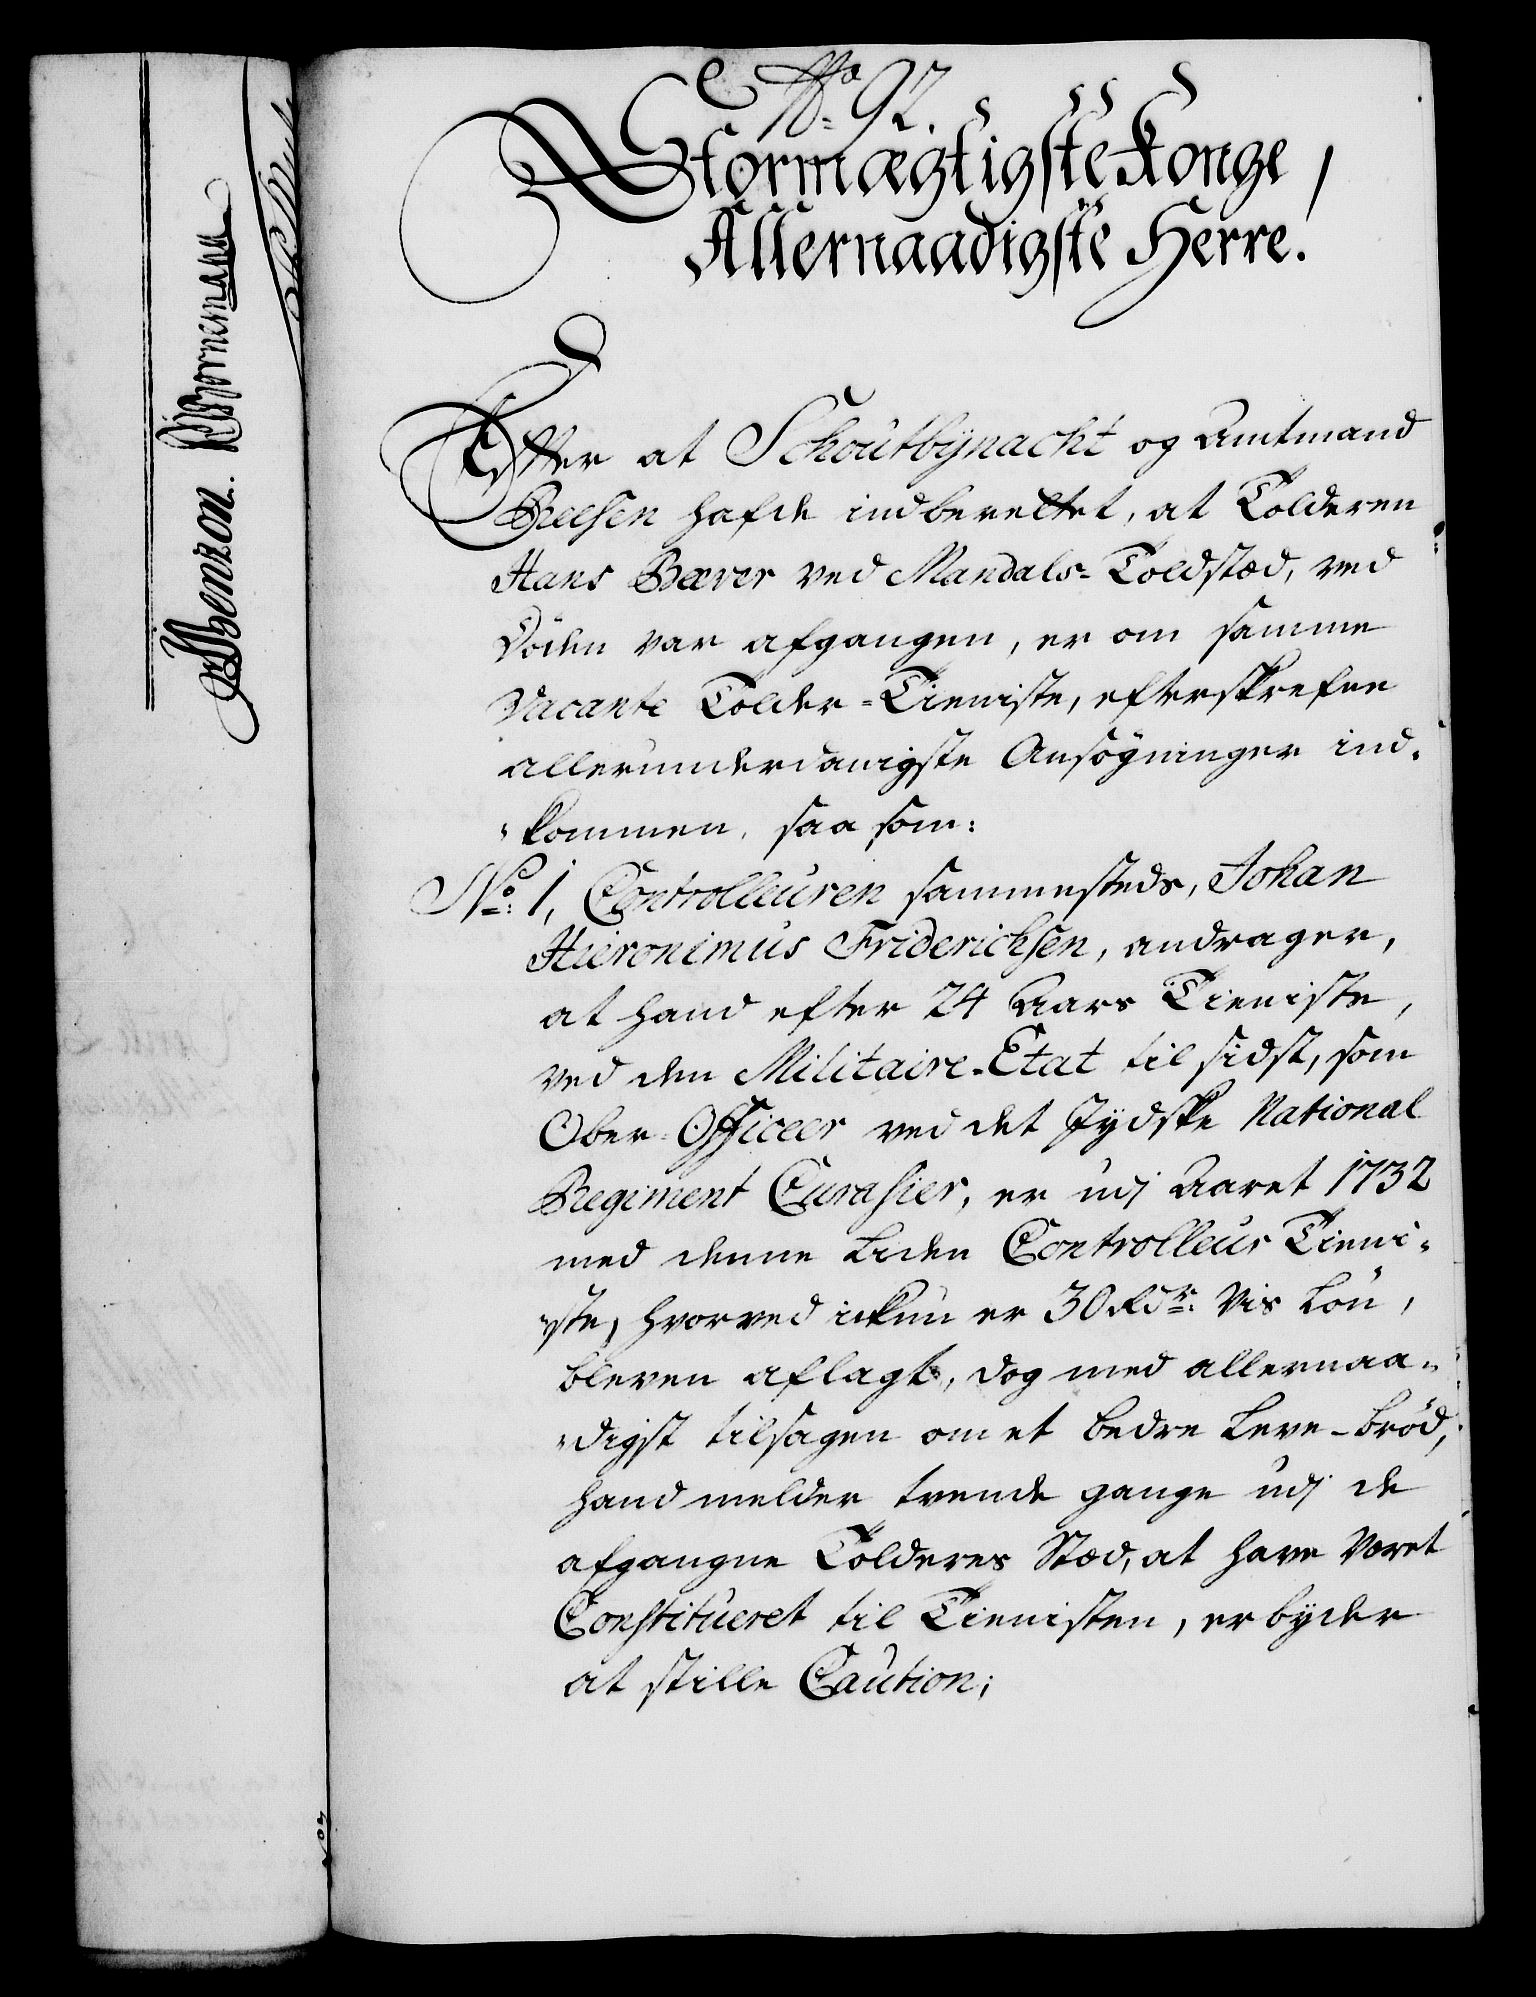 No 92.
Stormægtigste Konge,
Allernaadigste Herre.
Efter at Schoutbynacht og Amtmand
Reesen hafde indberettet, at Tolderen
Hans Bærer ved Mandals- Toldstæd, ved
Döden var afgangen, er om samme
Vacante Tolder-Tieniste, efterskrefne
allerunderdanigste Ansögninger ind-
kommen, saasom:
No: 1, Controlleuren sammesteds, Johan
Hieronimus Friderichsen, andrager,
at hand efter 24 Aars Tieniste,
ved den Militaire-Etat til sidst, som
Ober-Officeer ved det Jydske National
Regiment Curasier, er udj Aaret 1732
med denne liden Controlleur Tieni-
ste, hvorved ickun er 30 Rdr: Vis Lön,
bleven aflagt, dog med allernaa-
digst tilsagen om et bedre Leve-bröd,
hand melder trende gange udj de
afgangne Tolderes Stæd, at have været
Constitueret til Tienisten, erbyder
at stille Caution;
Benzon. Bornemann